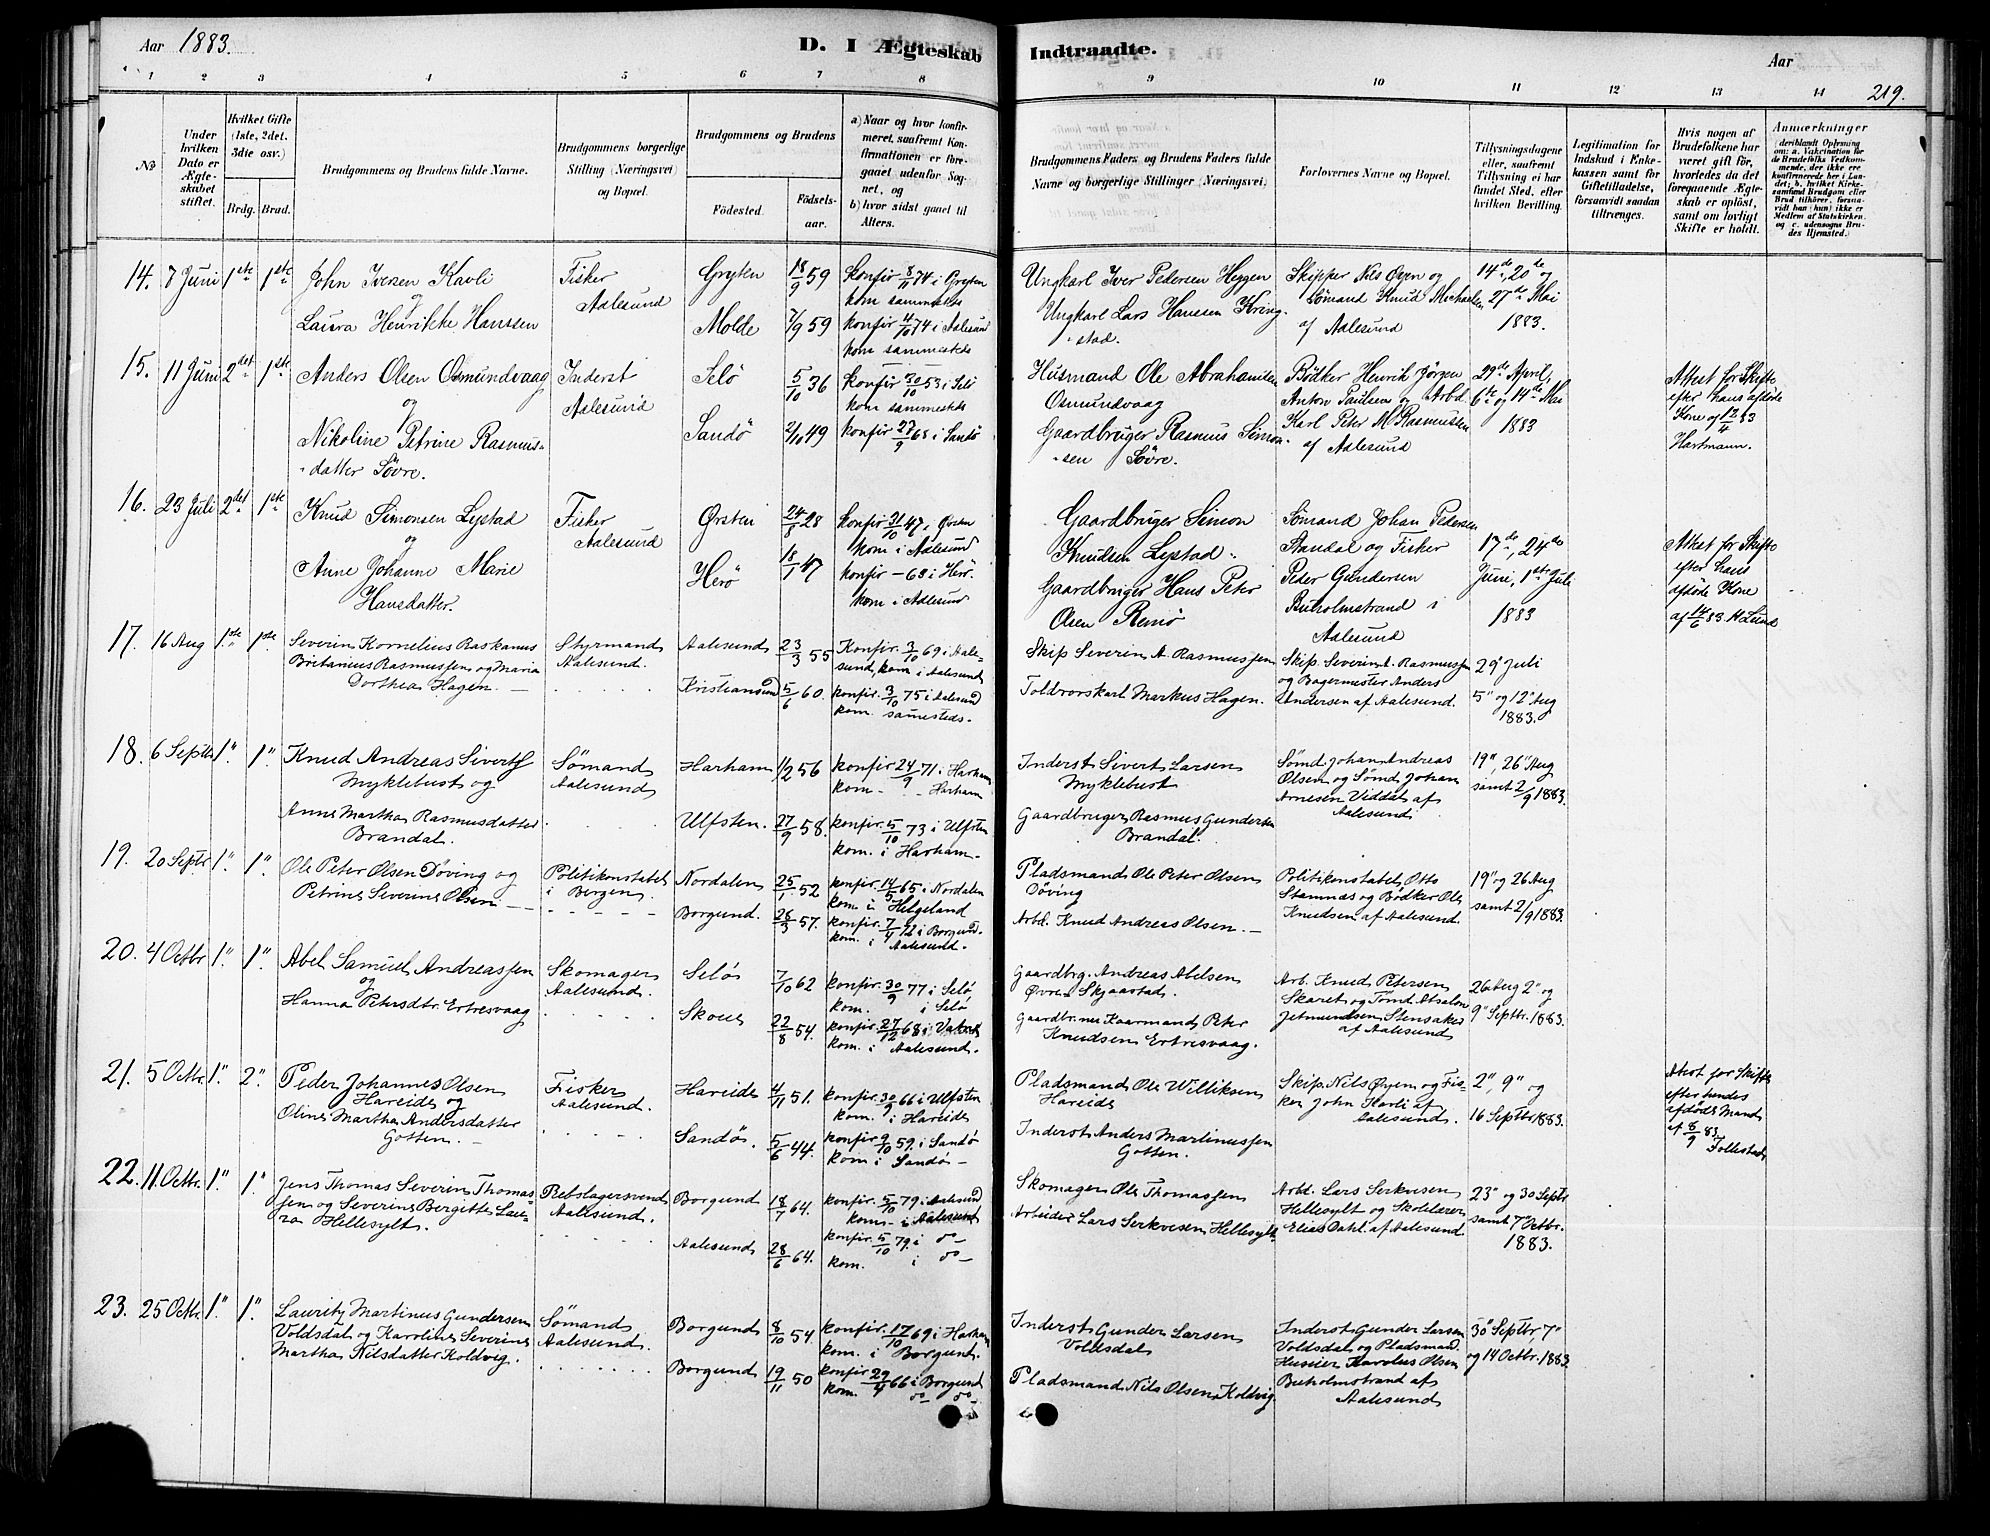 Aar 1883.
D. I Ægteskab
Indtraadte.
Aar
219.
1 2 3 4 5 6 7 8
9 10 11 12 13 14
No
Under hvilken Dato er Ægteskabet stiftet.
Hvilket Gifte (1ste, 2det, 3die osv.)
Brdg. Brud.
Brudgommens og Brudens fulde Navne.
Brudgommens borgerlige Stilling (Næringsvei) og Bopæl.
Brudgommens og Brudens
Fødested.
Fødselsaar.
a) Naar og hvor konfirmeret, saafremt Konfirmationen er foregaaet udenfor Sognet, og
b) hvor sidst ganet til Alters.
Brudgommens Faders og Brudens Faders fulde Navne og borgerlige Stillinger (Næringsvei)
Forlovernes Navne og Bopæl.
Tillysningsdagene eller, saafremt Tillysning ei har fundet Sted, efter hvilken Bevilling.
Legitimation for Indskud i Enkekassen samt for Giftetilladelse, forsaavidt saadan tiltrænges.
Hvis nogen af Brudefolkene har været gift før, hvorledes da det foregaaende Ægteskab er opløst, samt om lovligt Skifte er holdt.
Anmærkninger (deriblandt Oplysning om: a. Vakcination for de Brudefolks Vedkommende, der ikke ere konfirmerede her i Landet; b. hvilket Kirkesamfund Brudgom eller Brud tilhører, forsaavidt han (hun) ikke er Medlem af Statskirken, og c. udensogns Brudes Hjemsted.)
14. 7 Juni 1ste 1ste John Iversen Kavli Fisker Gryten 18/9 59 Konfir 8/11 74 i Gryten
og Aalesund kom sammesteds
Laura Henrikke Hanssen Molde 7/9 59 konfir 4/10 74 i Aalesund
kom sammesteds
Ungkarl Iver Pedersen Heggen Skipper Nils Øyen og 14de, 20de og
Ungkarl Lars Hansen Kring- Sømand Knud Michaelsen 27de Mai
stad. af Aalesund 1883.
15. 11 Juni 2det 1ste Anders Olsen Osmundvaag Inderst Selö 5/10 36 Konfir 30/10 53 i Selö
og Aalesund kom sammesteds
Nikoline Petrine Rasmus- Sandö 2/11 49 konfir 27/9 63 i Sandö
datter Sövre.
Husmand Ole Abrahamsen Bødker Henrik Jörgen 29de April,
Osmundvaag Anton Paulsen og Arbd. 6te og 14de Mai
Gaardbruger Rasmus Simon- Karl Peter M Rasmussen 1883
sen Sövre. af Aalesund
Attest for Skifte
efter hans afdøde
Kone af 12/4 83
Hartmann.
16. 23 Juli 2det 1ste Knud Simonsen Lystad Fisker Ørsten 24/8 28 Konfir 31/10 47 i Ørsten
og Aalesund kom i Aalesund
Anne Johanne Marie Herö 18/1 47 konfir - 63 i Herö.
Hansdatter. kom i Aalesund
Gaardbruger Simon Sömand Johan Pedersen
Knudsen Lystad Standal og Fisker 17de, 24de
Gaardbruger Hans Peter Peder Gundersen Juni, 1ste Juli
Olsen Remö Buholmstrand i 1883
Aalesund
Attest for Skifte
efter hans
afdøde Kone
af 14/6 83. H Lund
17. 16 Aug 1ste 1ste Severin Kornelius Raskanus Styrmand Aalesund 23/3 55 Konfir. 3/10 69 i Aale-
Britanius Rasmussen og Maria Aalesund. sund, kom i Aalesund
Dorthea Hagen. Kristiansund 5/6 60. konfir. 3/10 75 i Aalesund
kom. samesteds.
Skip. Severin A. Rasmussen Skip. Severin A. Rasmussen 29' Juli
og Bagermester Anders
Toldrorskarl Markus Hagen. Andersen af Aalesund. 5" og 12" Aug
1883.
18. 6 Septbr 1" 1" Knud Andreas Sivertss Sömand Harham 1/2 56 konfir 24/9 71 i Harham
Myklebust og Aalesund kom - " - Harham
Anne Martha Rasmusdatter Ulfsten. 27/9 58. konfir. 5/10 73 i Ulfsten
Brandal. kom. i Harham
Inderst Sivert Larsen Sømd. Johan Andreas 19", 26" Aug
Myklebust Olsen og Sömd. Johan samt 2/9 1883.
Gaardbruger Rasmus Gundersen Arnesen Viddal af
Brandal. Aalesund
19. 20 Septbr 1" 1" Ole Peter Olsen Döving og Politikonstabel Nordalen 25/1 52 konfir. 14/5 65 i Nordalen
Petrine Severine Olsen i Bergen kom i Helgeland
Borgund. 28/3 57. konfir. 7/4 72 i Borgund.
kom. i Aalesund.
Pladsmand Ole Peter Olsen Politikonstabel Otto 19" og 26 Aug
Döving Stamnæs og Bödker Ole samt 2/9 1883.
Arbd. Knud Andreas Olsen. Knudsen af Aalesund.
20. 4 Octbr 1" 1" Abel Samuel Andreassen Skomager Selö 7/10 62 konfir. 30/9 77 i Selö
og Aalesund. kom. i Selö
Hanna Petersdtr. Ertresvaag Skoue 22/8 54. konfir. 27/12 68 i Vatne
kom. i Aalesund.
Gaardbrg. Andreas Abelsen Arb. Knud Petersen 26 Aug 2" og
Øvre Skjaastad. Skaret og Tömd. Absalon 9" Septbr. 1883.
Gaardbr. Kaarmand Peter Jetmundsen Stensaker
Knudsen Ertresvaag. af Aalesund
21. 5 Octbr. 1" 2" Peder Johannes Olsen Fisker Hareide 4/11 51. konfir. 30/9 66 i Ulfsten
Hareide og Aalesund. kom. i Hareide
Oline Martha Andersdatter Sandö. 5/6 44. konfir. 9/10 59. i Sandö
Gotten. kom i Sandö
Pladsmand Ole Williksen Skip. Nils Øyen og Fis- 2", 9" og
Hareide ker John Karli af 16 Septbr 1883.
Inderst Anders Martinussen Aalesund.
Gotten.
Atest for Skifte
efter hendes
afdøde Mand
af 8/9 83.
Tollestad
22. 11. Octbr. 1" 1" Jens Thomas Severin Thomas- Rebslagersvend Borgund 18/7 64. konfir. 5/10 79. i Aalesund
sen og Severine Bergitte Lau- Aalesund. kom. i Aalesund
ra Hellesylt. Aalesund 28/6 64. konfir. 5/10 79. i do
kom. i do
Skomager Ole Thomassen Arbd. Lars Serkvesen 23" og 30 Septbr
Arbeider Lars Serkvesen Hellesylt Hellesylt og Skolelærer samt 7" Octbr.
Elias Dahl af Aalesund. 1883.
23. 25 Octbr. 1" 1" Lauritz Martinus Gundersen Sömand Borgund 8/10 54 konfir. 17/10 69 i Harham
Voldsdal og Karoline Severine Aalesund. kom. i Borgund.
Martha Nilsdatter Koldvig. Borgund 19/11 50 konfir 29/4 66 i Borgund
kom. do do
Inderst Gunder Larsen Inderst Gunder Larsen 30" Septbr, 7"
Voldsdal Voldsdal og Pladsmand. og 14 Octbr. 1883.
Karolus Olsen
Pladsmand Nils Olsen Koldvig. Buholmstrand af
Aalesund